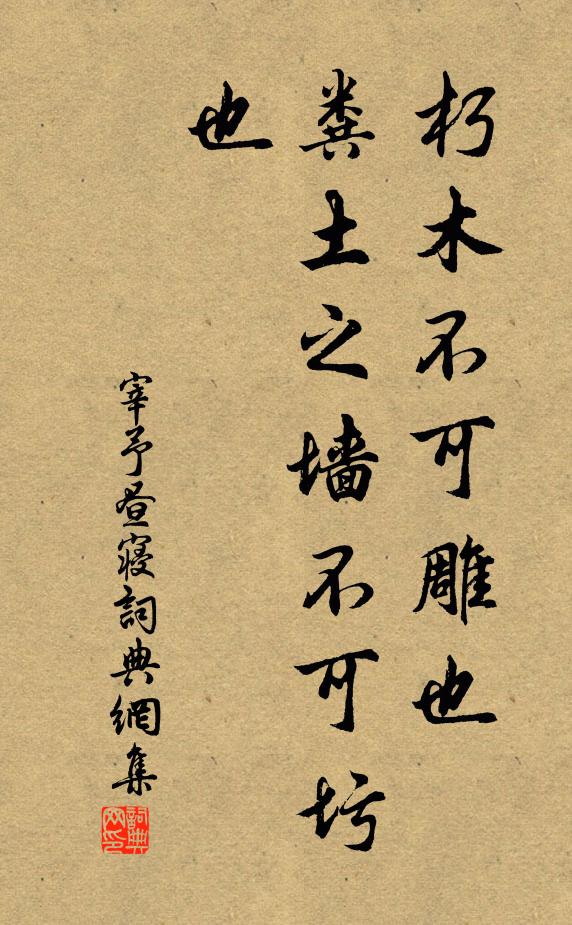 朽木不可雕也
糞土之墙不可圬
也
宰予昼寝詞典網集
詞典网印